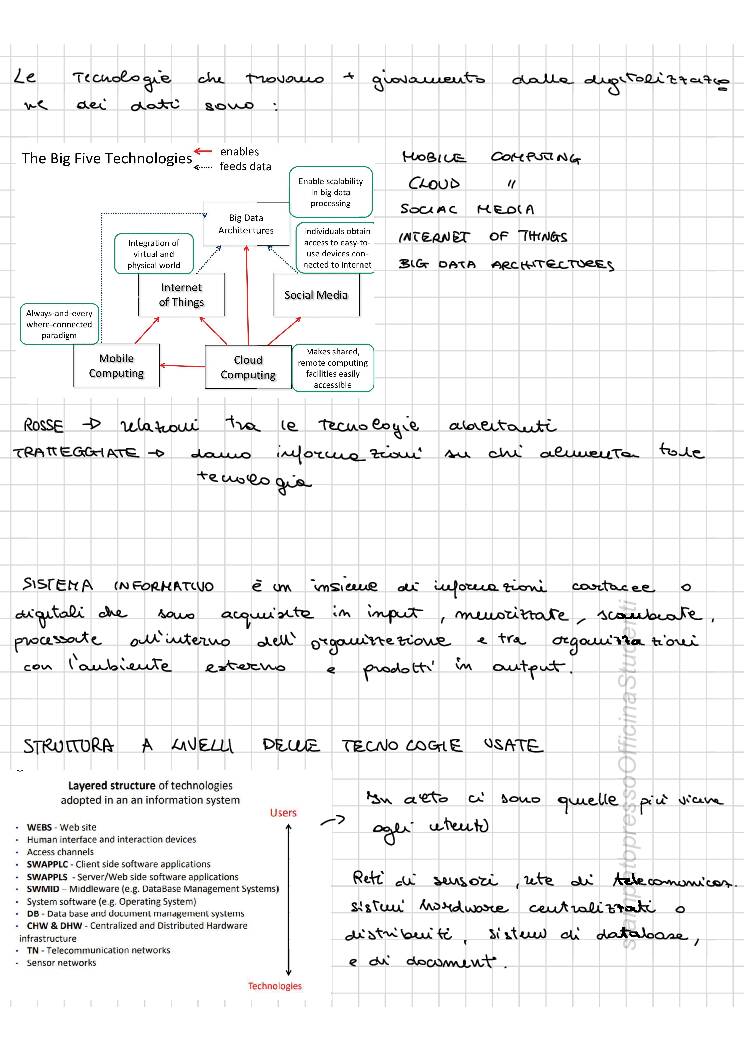 Le Tecnologie che trovano + giovamento dalla digitalizzazio
ne dei dati sono :
The Big Five Technologies
enables
feeds data
Enable scalability
in big data
processing
Big Data
Architectures
Individuals obtain
access to easy-to-
use devices con-
nected to Internet
Integration of
virtual and
physical world
Internet
of Things
Social Media
Always-and-every
where-connected
paradigm
Mobile
Computing
Cloud
Computing
Makes shared,
remote computing
facilities easily
accessible
MOBILE COMPUTING
CLOUD "
SOCIAL MEDIA
INTERNET OF THINGS
BIG DATA ARCHITECTURES
ROSSE → relazioni tra le tecnologie abilitanti
TRATTEGGIATE → danno informazioni su chi alimenta tale
tecnologia
SISTEMA INFORMATIVO è un insieme di informazioni cartacee o
digitali che sono acquisite in input, memorizzate, scambiate,
processate all'interno dell'organizzazione e tra organizzazioni
con l'ambiente esterno e prodotti in output.
STRUTTURA A LIVELLI DELLE TECNOLOGIE USATE
Layered structure of technologies
adopted in an an information system
Users
• WEBS - Web site
• Human interface and interaction devices
• Access channels
• SWAPPLC - Client side software applications
• SWAPPLS - Server/Web side software applications
• SWMID – Middleware (e.g. DataBase Management Systems)
• System software (e.g. Operating System)
• DB - Data base and document management systems
• CHW & DHW - Centralized and Distributed Hardware
infrastructure
• TN - Telecommunication networks
• Sensor networks
Technologies
→ In alto ci sono quelle più vicine
agli utenti
Reti di sensori, rete di telecomunicaz.
sistemi hardware centralizzati o
distribuiti, sistemi di database,
e di document.
stampatopressoOfficinaStudenti